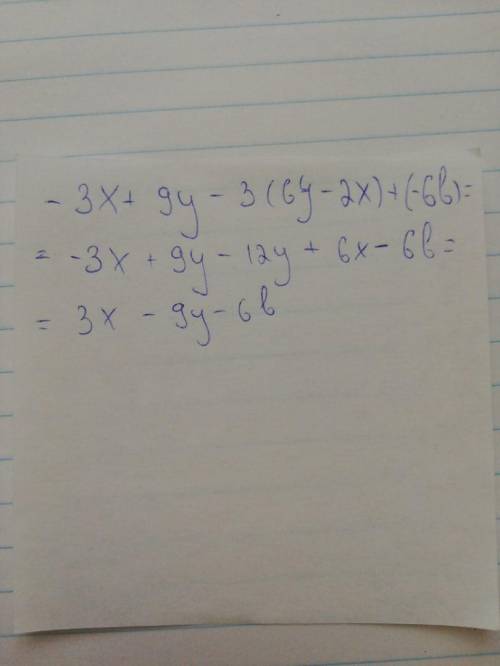 - 3x + 9y - 3 (6y - 2x) + (-6b) =
= -3x + 9y - 12y + 6x - 6b =
= 3x - 9y - 6b